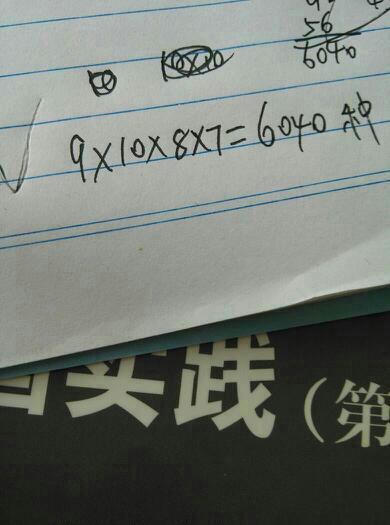 56
6040
9×10×8×7=6040 种
实践(第